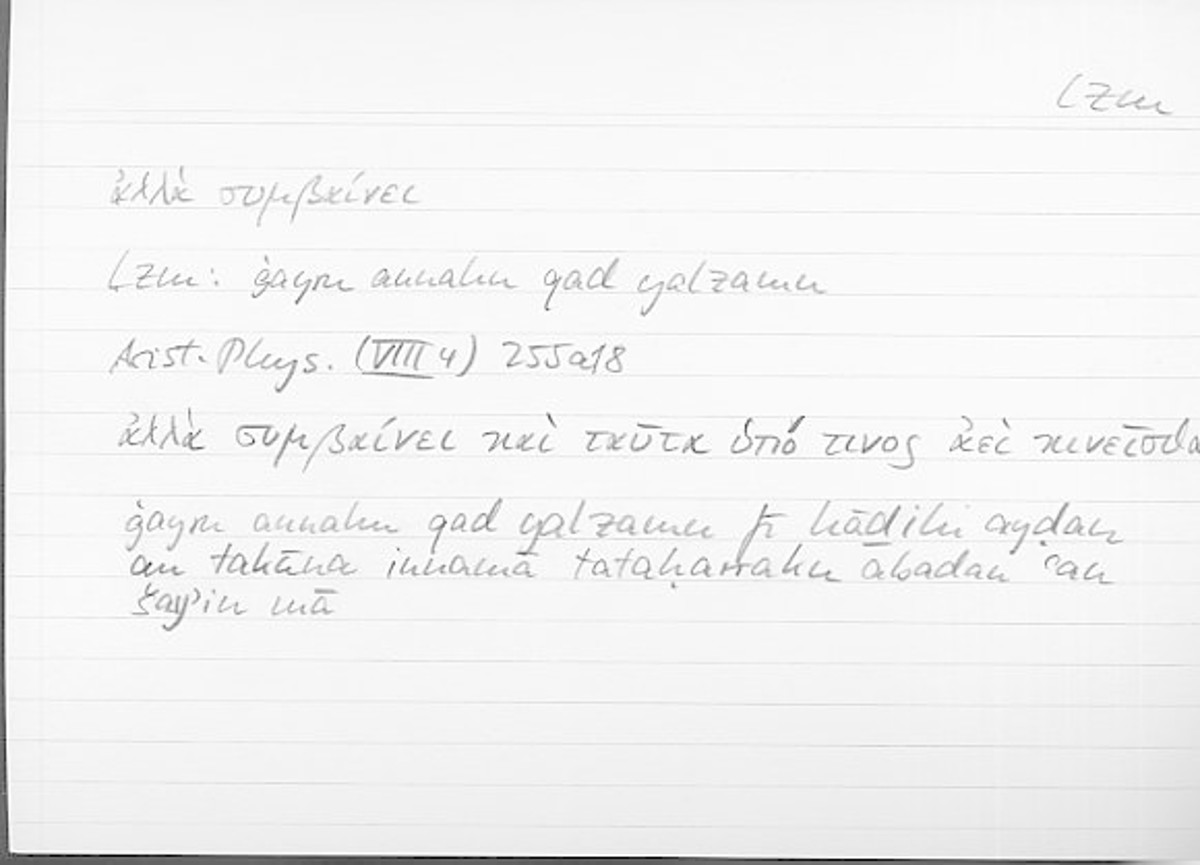 lzm
ἀλλὰ συμβαίνει
lzm: ġayra annahu qad yalzamu
Arist. Phys. (VIII 4) 255a18
ἀλλὰ συμβαίνει καὶ ταῦτα ὑπό τινος ἀεὶ κινεῖσθα
ġayra annahu qad yalzamu fī hāḏihi ayḍan
an takūna innamā tataḥarraku abadan ʿan
šayʾin mā